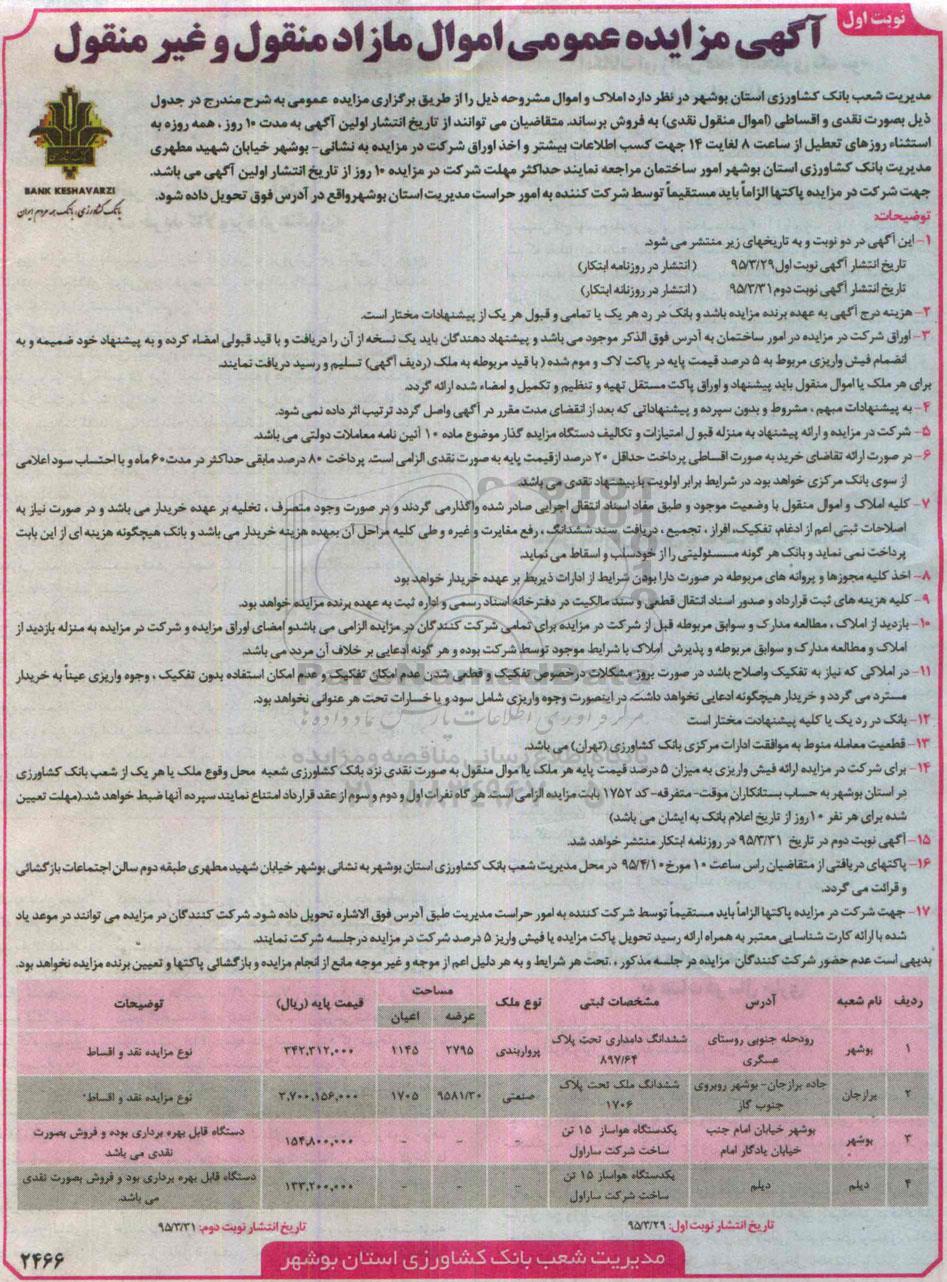 نوبت اول
آگهی مزایده عمومی اموال مازاد منقول و غیر منقول
BANK KESHAVARZI
بانک کشاورزی، بانک همه مردم ایران
مدیریت شعب بانک کشاورزی استان بوشهر در نظر دارد املاک و اموال مشروحه ذیل را از طریق برگزاری مزایده عمومی به شرح مندرج در جدول
ذیل بصورت نقدی و اقساطی (اموال منقول نقدی) به فروش برساند. متقاضیان می توانند از تاریخ انتشار اولین آگهی به مدت ۱۰ روز ، همه روزه به
استثناء روزهای تعطیل از ساعت ۸ لغایت ۱۴ جهت کسب اطلاعات بیشتر و اخذ اوراق شرکت در مزایده به نشانی- بوشهر خیابان شهید مطهری
مدیریت بانک کشاورزی استان بوشهر امور ساختمان مراجعه نمایند حداکثر مهلت شرکت در مزایده ۱۰ روز از تاریخ انتشار اولین آگهی می باشد.
جهت شرکت در مزایده پاکتها الزاماً باید مستقیماً توسط شرکت کننده به امور حراست مدیریت استان بوشهرواقع در آدرس فوق تحویل داده شود.
توضیحات:
۱- این آگهی در دو نوبت و به تاریخهای زیر منتشر می شود.
تاریخ انتشار آگهی نوبت اول ۹۵/۳/۲۹ (انتشار در روزنامه ابتکار)
تاریخ انتشار آگهی نوبت دوم ۹۵/۳/۳۱ (انتشار در روزنانه ابتکار)
۲- هزینه درج آگهی به عهده برنده مزایده باشد و بانک در رد هر یک یا تمامی و قبول هر یک از پیشنهادات مختار است.
۳- اوراق شرکت در مزایده در امور ساختمان به آدرس فوق الذکر موجود می باشد و پیشنهاد دهندگان باید یک نسخه از آن را دریافت و با قید قبولی امضاء کرده و به پیشنهاد خود ضمیمه و به
انضمام فیش واریزی مربوط به ۵ درصد قیمت پایه در پاکت لاک و موم شده ( با قید مربوطه به ملک (ردیف آگهی) تسلیم و رسید دریافت نمایند.
برای هر ملک یا اموال منقول باید پیشنهاد و اوراق پاکت مستقل تهیه و تنظیم و تکمیل و امضاء شده ارائه گردد.
۴- به پیشنهادات مبهم ، مشروط و بدون سپرده و پیشنهاداتی که بعد از انقضای مدت مقرر در آگهی واصل گردد ترتیب اثر داده نمی شود.
۵- شرکت در مزایده و ارائه پیشنهاد به منزله قبول امتیازات و تکالیف دستگاه مزایده گذار موضوع ماده ۱۰ آئین نامه معاملات دولتی می باشد.
۶- در صورت ارائه تقاضای خرید به صورت اقساطی پرداخت حداقل ۲۰ درصد ازقیمت پایه به صورت نقدی الزامی است. پرداخت ۸۰ درصد مابقی حداکثر در مدت۶۰ ماه و با احتساب سود اعلامی
از سوی بانک مرکزی خواهد بود. در شرایط برابر اولویت با پیشنهاد نقدی می باشد.
۷- کلیه املاک و اموال منقول با وضعیت موجود و طبق مفاد اسناد انتقال اجرایی صادر شده واگذار می گردند و در صورت وجود متصرف ، تخلیه بر عهده خریدار می باشد و در صورت نیاز به
اصلاحات ثبتی اعم از ادغام، تفکیک، افراز ، تجمیع ، دریافت سند ششدانگ ، رفع مغایرت و غیره و طی کلیه مراحل آن بعهده هزینه خریدار می باشد و بانک هیچگونه هزینه ای از این بابت
پرداخت نمی نماید و بانک هر گونه مسسئولیتی را از خودسلب و اسقاط می نماید.
۸- اخذ کلیه مجوزها و پروانه های مربوطه در صورت دارا بودن شرایط از ادارات ذیربط بر عهده خریدار خواهد بود
۹- کلیه هزینه های ثبت قرارداد و صدور اسناد انتقال قطعی و سند مالکیت در دفترخانه اسناد رسمی و اداره ثبت به عهده برنده مزایده خواهد بود.
۱۰- بازدید از املاک ، مطالعه مدارک و سوابق مربوطه قبل از شرکت در مزایده برای تمامی شرکت کنندگان در مزایده الزامی می باشدو امضای اوراق مزایده و شرکت در مزایده به منزله بازدید از
املاک و مطالعه مدارک و سوابق مربوطه و پذیرش املاک با شرایط موجود توسط شرکت بوده و هر گونه ادعایی بر خلاف آن مردد می باشد.
۱۱- در املاکی که نیاز به تفکیک واصلاح باشد در صورت بروز مشکلات درخصوص تفکیک و قطعی شدن عدم امکان تفکیک و عدم امکان استفاده بدون تفکیک ، وجوه واریزی عیناً به خریدار
مسترد می گردد و خریدار هیچگونه ادعایی نخواهد داشت. در اینصورت وجوه واریزی شامل سود و یا خسارات تحت هر عنوانی نخواهد بود.
۱۲- بانک در رد یک یا کلیه پیشنهادت مختار است
۱۳- قطعیت معامله منوط به موافقت ادارات مرکزی بانک کشاورزی (تهران) می باشد.
۱۴- برای شرکت در مزایده ارائه فیش واریزی به میزان ۵ درصد قیمت پایه هر ملک یا اموال منقول به صورت نقدی نزد بانک کشاورزی شعبه محل وقوع ملک یا هر یک از شعب بانک کشاورزی
در استان بوشهر به حساب بستانکاران موقت- متفرقه- کد ۱۷۵۲ بابت مزایده الزامی است. هر گاه نفرات اول و دوم و سوم از عقد قرارداد امتناع نمایند سپرده آنها ضبط خواهد شد.(مهلت تعیین
شده برای هر نفر ۱۰ روز از تاریخ اعلام بانک به ایشان می باشد)
۱۵- آگهی نوبت دوم در تاریخ ۹۵/۳/۳۱ در روزنامه ابتکار منتشر خواهد شد.
۱۶- پاکتهای دریافتی از متقاضیان راس ساعت ۱۰ مورخ ۹۵/۴/۱۰ در محل مدیریت شعب بانک کشاورزی استان بوشهر به نشانی بوشهر خیابان شهید مطهری طبقه دوم سالن اجتماعات بازگشائی
و قرائت می گردد.
۱۷- جهت شرکت در مزایده پاکتها الزاماً باید مستقیماً توسط شرکت کننده به امور حراست مدیریت طبق آدرس فوق الاشاره تحویل داده شود. شرکت کنندگان در مزایده می توانند در موعد یاد
شده با ارائه کارت شناسایی معتبر به همراه ارائه رسید تحویل پاکت مزایده یا فیش واریز ۵ درصد شرکت در مزایده درجلسه شرکت نمایند.
بدیهی است عدم حضور شرکت کنندگان مزایده در جلسه مذکور ، تحت هر شرایط و به هر دلیل اعم از موجه و غیر موجه مانع از انجام مزایده و بازگشائی پاکتها و تعیین برنده مزایده نخواهد بود.
ردیف نام شعبه آدرس مشخصات ثبتی نوع ملک مساحت عرصه اعیان قیمت پایه (ریال) توضیحات
۱ بوشهر رودحله جنوبی روستای عسگری ششدانگ دامداری تحت پلاک ۸۹۷/۶۴ پرواربندی ۲۷۹۵ ۱۱۴۵ ۳۴۲,۳۱۲,۰۰۰ نوع مزایده نقد و اقساط
۲ برازجان جاده برازجان- بوشهر روبروی جنوب گاز ششدانگ ملک تحت پلاک ۱۷۰۶ صنعتی ۹۵۸۱/۳۰ ۱۷۰۵ ۳,۷۰۰,۱۵۶,۰۰۰ نوع مزایده نقد و اقساط
۳ بوشهر بوشهر خیابان امام جنب خیابان یادگار امام یکدستگاه هواساز ۱۵ تن ساخت شرکت ساراول - - - ۱۵۴,۸۰۰,۰۰۰ دستگاه قابل بهره برداری بوده و فروش بصورت نقدی می باشد
۴ دیلم دیلم یکدستگاه هواساز ۱۵ تن ساخت شرکت ساراول - - - ۱۳۳,۲۰۰,۰۰۰ دستگاه قابل بهره برداری بود و فروش بصورت نقدی می باشد.
تاریخ انتشار نوبت اول: ۹۵/۳/۲۹ تاریخ انتشار نوبت دوم: ۹۵/۳/۳۱
مدیریت شعب بانک کشاورزی استان بوشهر
۲۴۶۶